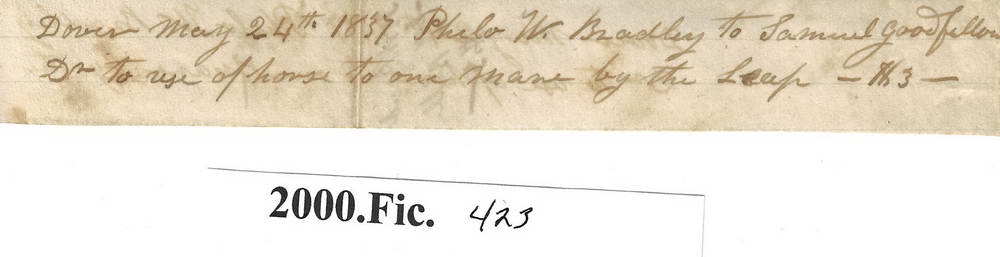 Dover May 24th 1837 Philo W. Bradley to Samuel Goodfellow
Dr to use of horse to one mare by the Leap — $3 —
2000.Fic. 423